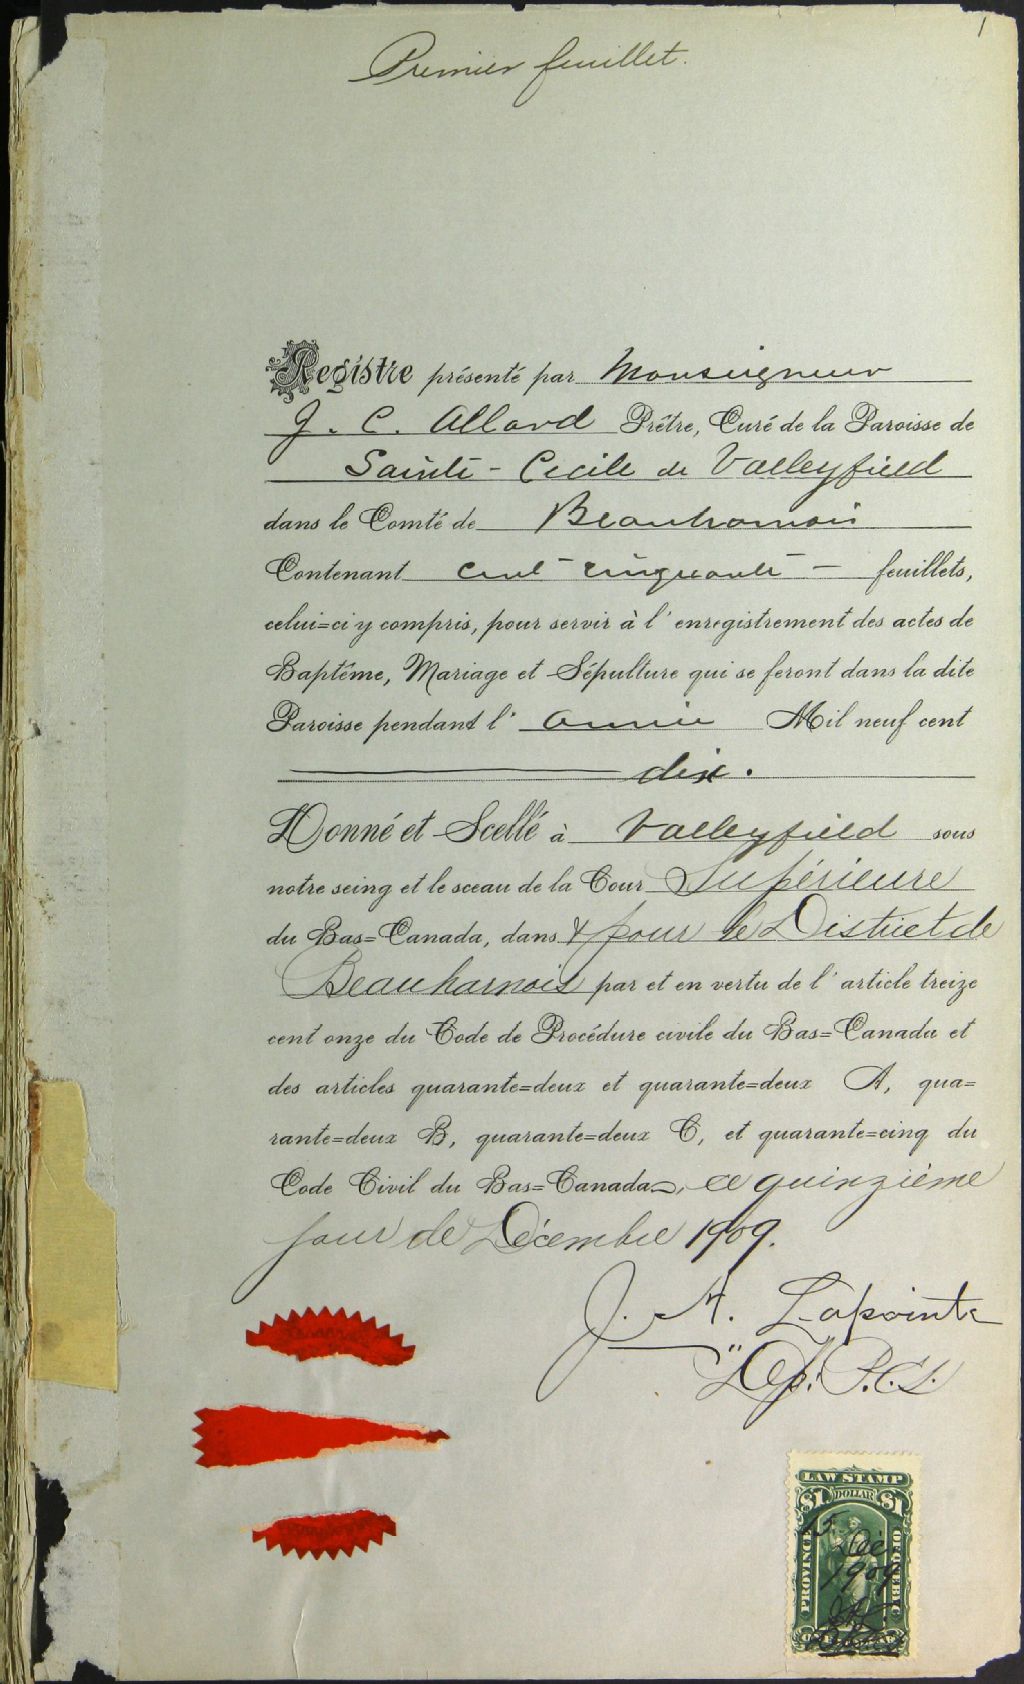 1
Premier feuillet.
Registre présenté par Monseigneur
J. C. Allard Prêtre, Curé de la Paroisse de
Sainte-Cecile de Valleyfield
dans le Comté de Beauharnois
Contenant cent cinquante feuillets,
celui=ci y compris, pour servir à l'enregistrement des actes de
Baptême, Mariage et Sépulture qui se feront dans la dite
Paroisse pendant l'année Mil neuf cent
dix.
Donné et Scellé à Valleyfield sous
notre seing et le sceau de la Cour Supérieure
du Bas=Canada, dans & pour le District de
Beauharnois par et en vertu de l'article treize
cent onze du Code de Procédure civile du Bas=Canada et
des articles quarante=deux et quarante=deux A, qua=
rante=deux B, quarante=deux C, et quarante=cinq du
Code Civil du Bas=Canada, ce quinzième
jour de Décembre 1909.
J. A. Lapointe
Dep. P.C.S.
LAW STAMP
$1 DOLLAR $1
PROVINCE OF QUEBEC
15
Déc.
1909